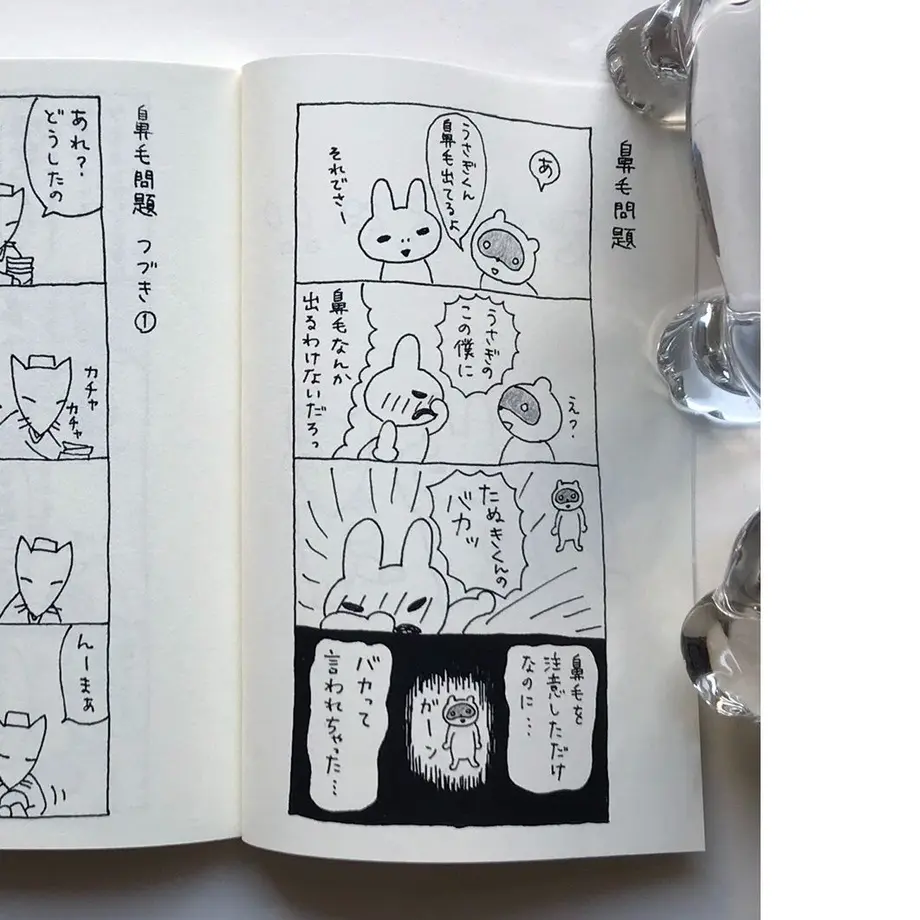 鼻毛問題
あ
うさぎくん
鼻毛出てるよ
それでさー
え?
うさぎの
この僕に
鼻毛なんか
出るわけないだろっ
たぬきくんの
バカッ
鼻毛を
注意しただけ
なのに…
ガーン
バカって
言われちゃった…
鼻毛問題 つづき①
あれ?
どうしたの
カチャ
カチャ
んーまぁ